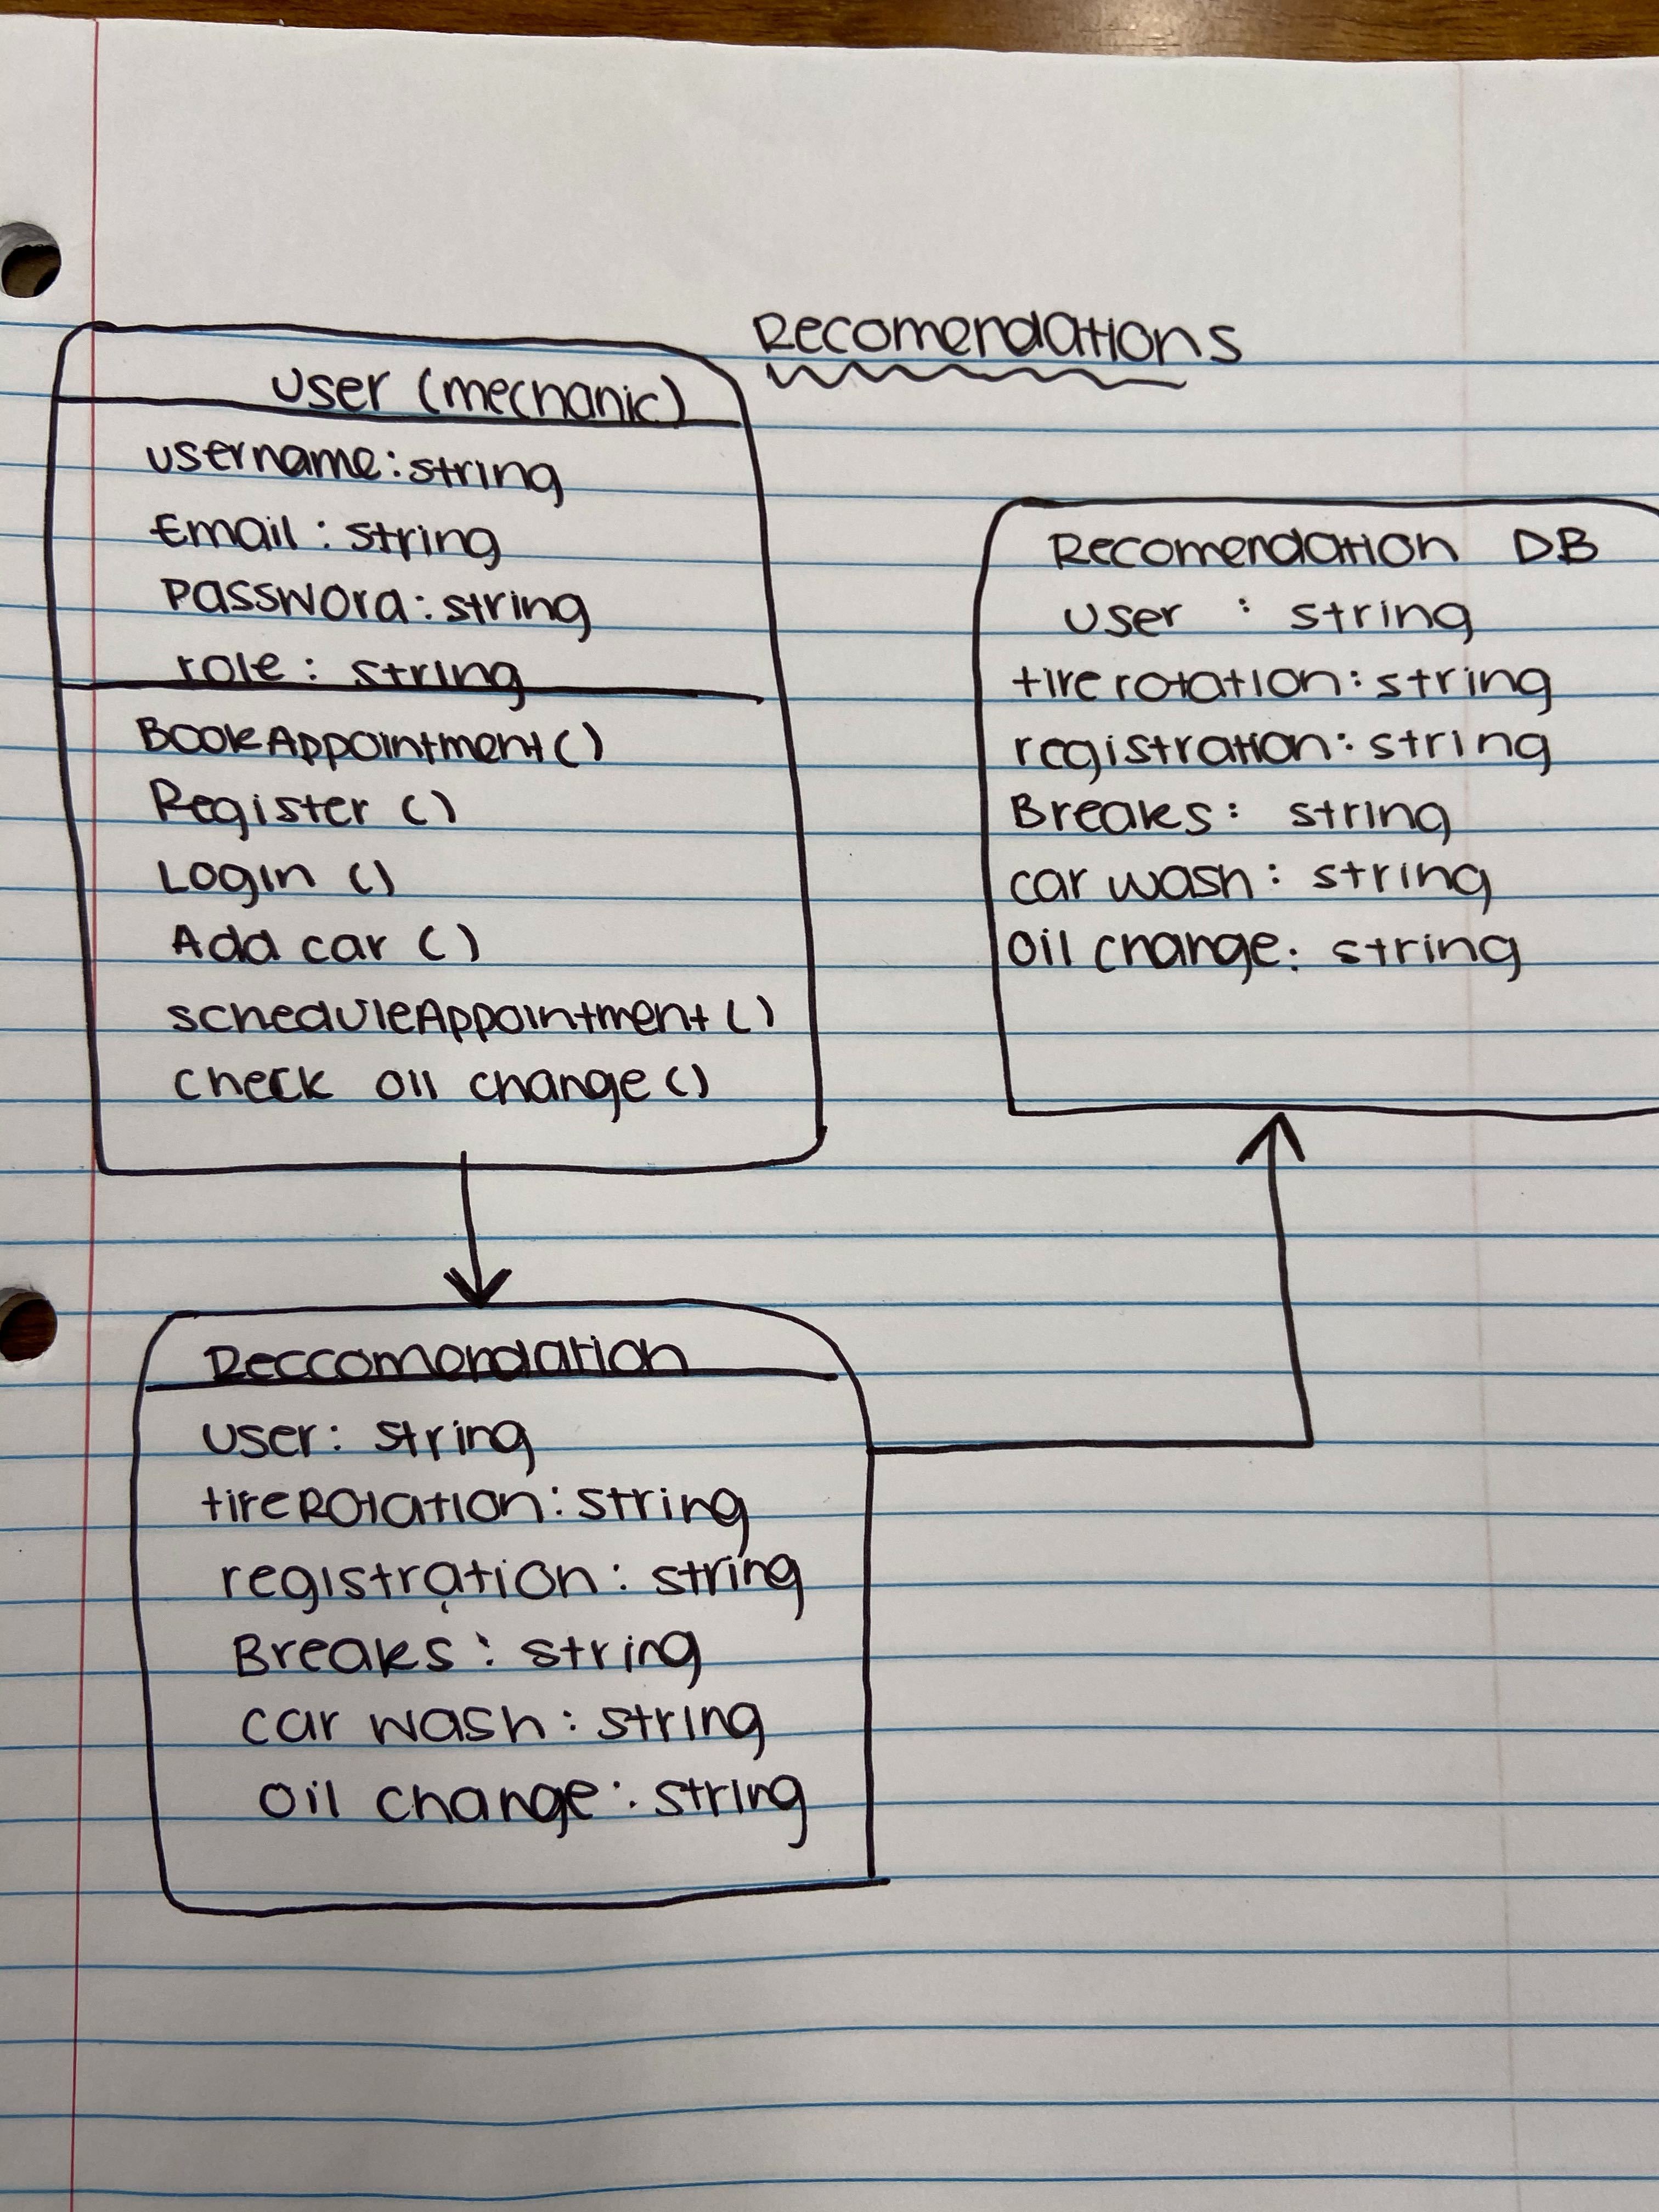 Recomendations
User (mechanic)
username: string
Email: string
Password: string
role: string
BookAppointment()
Register ()
Login ()
Add car ()
scheduleAppointment ()
check oil change ()
Recomendation DB
user : string
tire rotation: string
registration: string
Breaks: string
car wash: string
oil change: string
Reccomendation
user: string
tireRotation: string
registration: string
Breaks: string
car wash: string
oil change: string